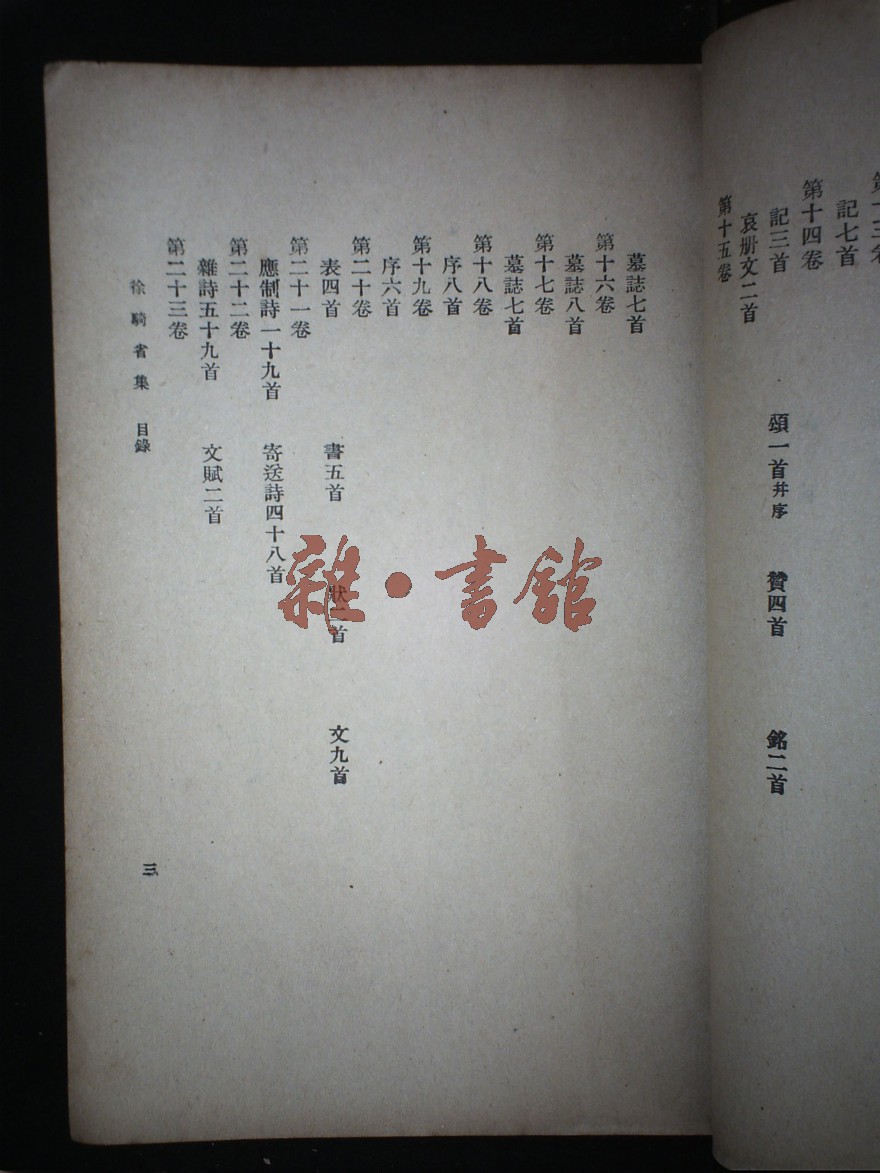 記七首
第十四卷
記三首 頌一首并序 贊四首 銘二首
哀册文二首
第十五卷
墓誌七首
第十六卷
墓誌八首
第十七卷
墓誌七首
第十八卷
序八首
第十九卷
序六首
第二十卷
表四首 書五首 狀二首 文九首
第二十一卷
應制詩一十九首 寄送詩四十八首
第二十二卷
雜詩五十九首 文賦二首
第二十三卷
徐騎省集 目錄
三
雜·書館